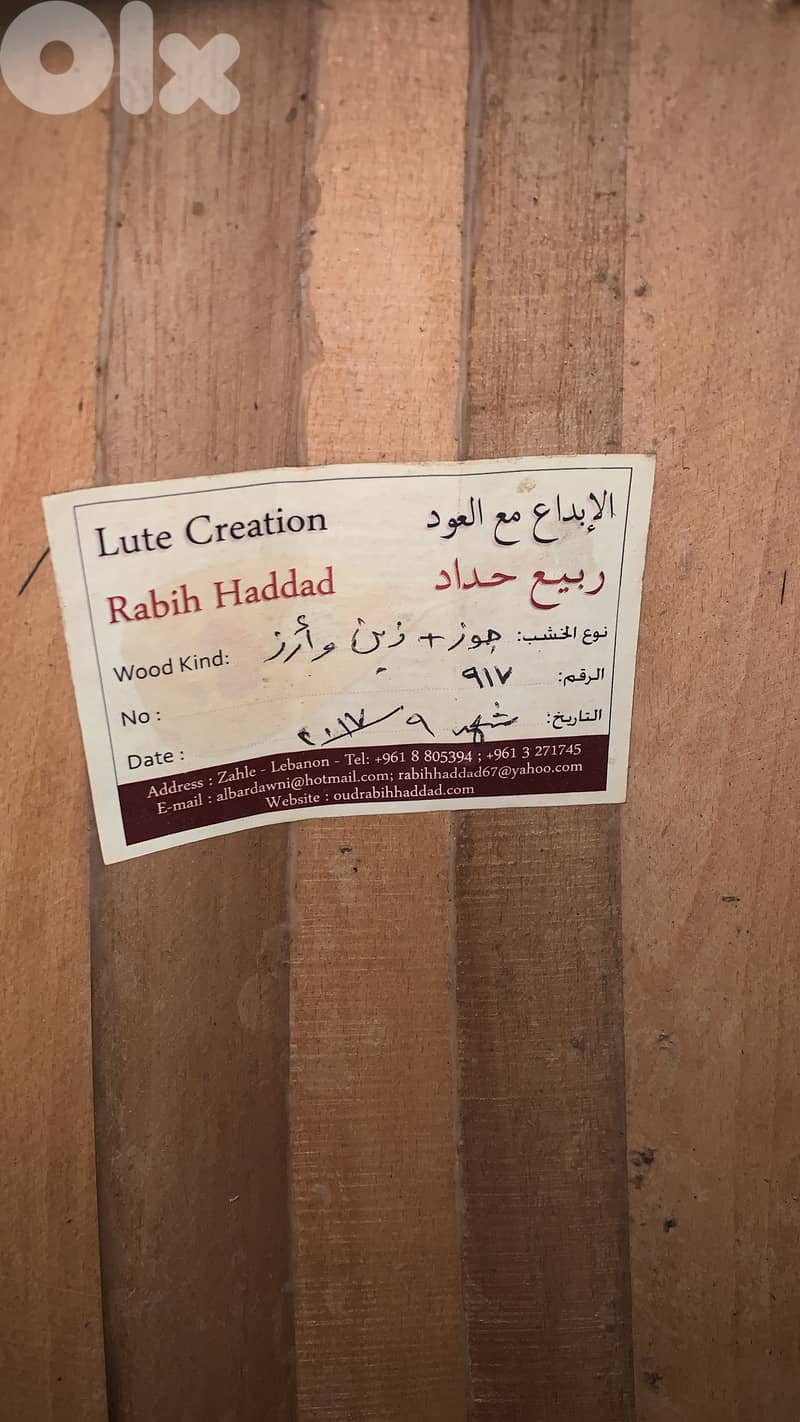 olx
Lute Creation الإبداع مع العود
Rabih Haddad ربيع حداد
Wood Kind: نوع الخشب: جوز + زين وأرز
No : الرقم: ٩١٧
Date : التاريخ: شهر ٩ / ٢٠١٧
Address : Zahle - Lebanon - Tel: +961 8 805394 ; +961 3 271745
E-mail : albardawni@hotmail.com; rabihhaddad67@yahoo.com
Website : oudrabihhaddad.com